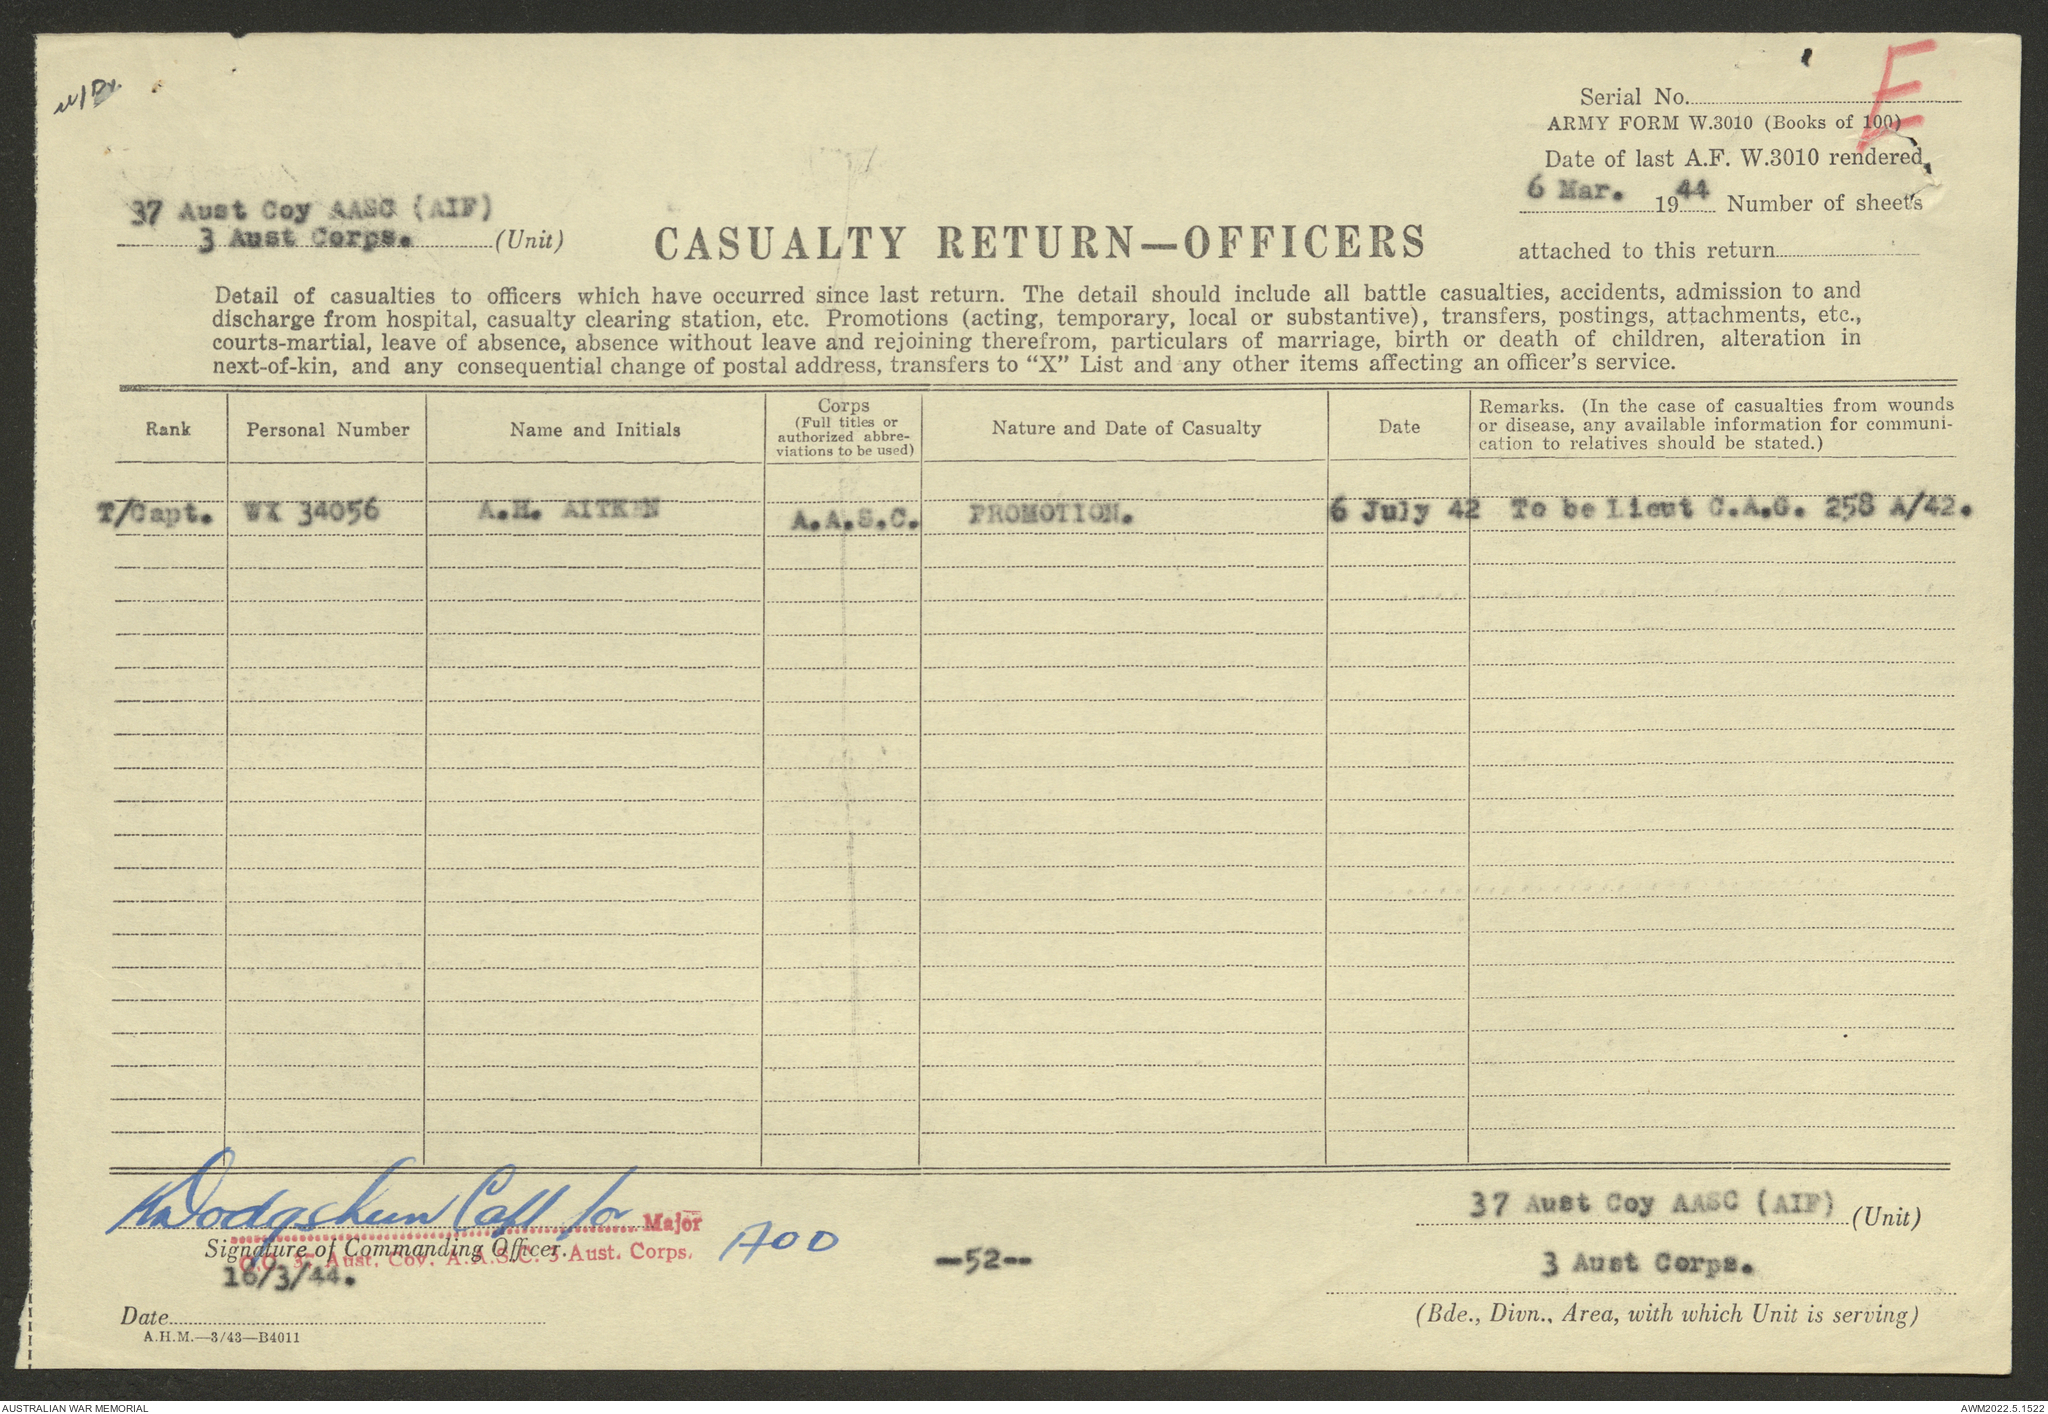 E
Serial No.
ARMY FORM W.3010 (Books of 100)
Date of last A.F. W.3010 rendered
6 Mar. 1944 Number of sheets
attached to this return
37 Aust Coy AASC (AIF)
3 Aust Corps. (Unit)
CASUALTY RETURN—OFFICERS
Detail of casualties to officers which have occurred since last return. The detail should include all battle casualties, accidents, admission to and
discharge from hospital, casualty clearing station, etc. Promotions (acting, temporary, local or substantive), transfers, postings, attachments, etc.,
courts-martial, leave of absence, absence without leave and rejoining therefrom, particulars of marriage, birth or death of children, alteration in
next-of-kin, and any consequential change of postal address, transfers to “X” List and any other items affecting an officer’s service.
Rank
Personal Number
Name and Initials
Corps
(Full titles or
authorized abbre-
viations to be used)
Nature and Date of Casualty
Date
Remarks. (In the case of casualties from wounds
or disease, any available information for communi-
cation to relatives should be stated.)
T/Capt. WX 34056 A.H. AITKEN A.A.S.C. PROMOTION. 6 July 42 To be Lieut C.A.G. 258 A/42.
Dodgshun Capt for Major
Signature of Commanding Officer.
O.C. 37 Aust. Coy. A.A.S.C. 3 Aust. Corps.
16/3/44.
Date
A.H.M.—3/43—B4011
--52--
37 Aust Coy AASC (AIF) (Unit)
3 Aust Corps.
(Bde., Divn., Area, with which Unit is serving)
AUSTRALIAN WAR MEMORIAL
AWM2022.5.1522